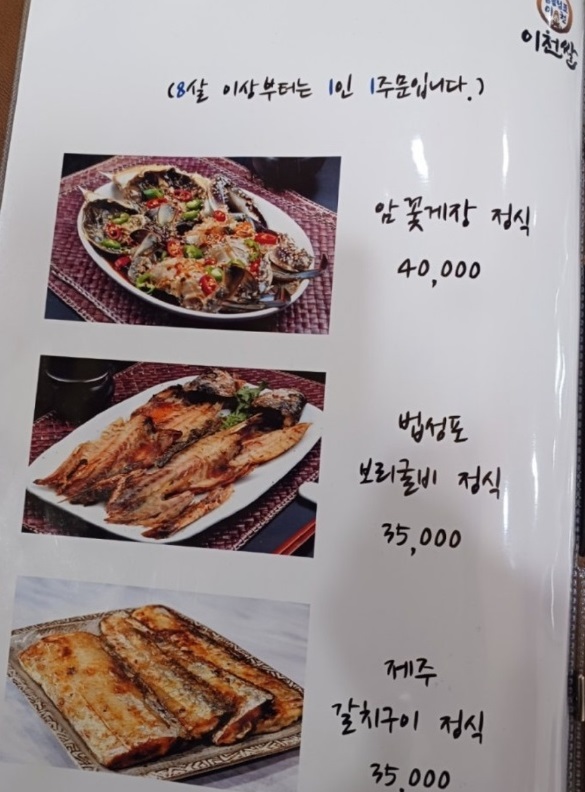 이천쌀
(8살 이상부터는 1인 1주문입니다.)
암꽃게장 정식
40,000
법성포
보리굴비 정식
35,000
제주
갈치구이 정식
35,000